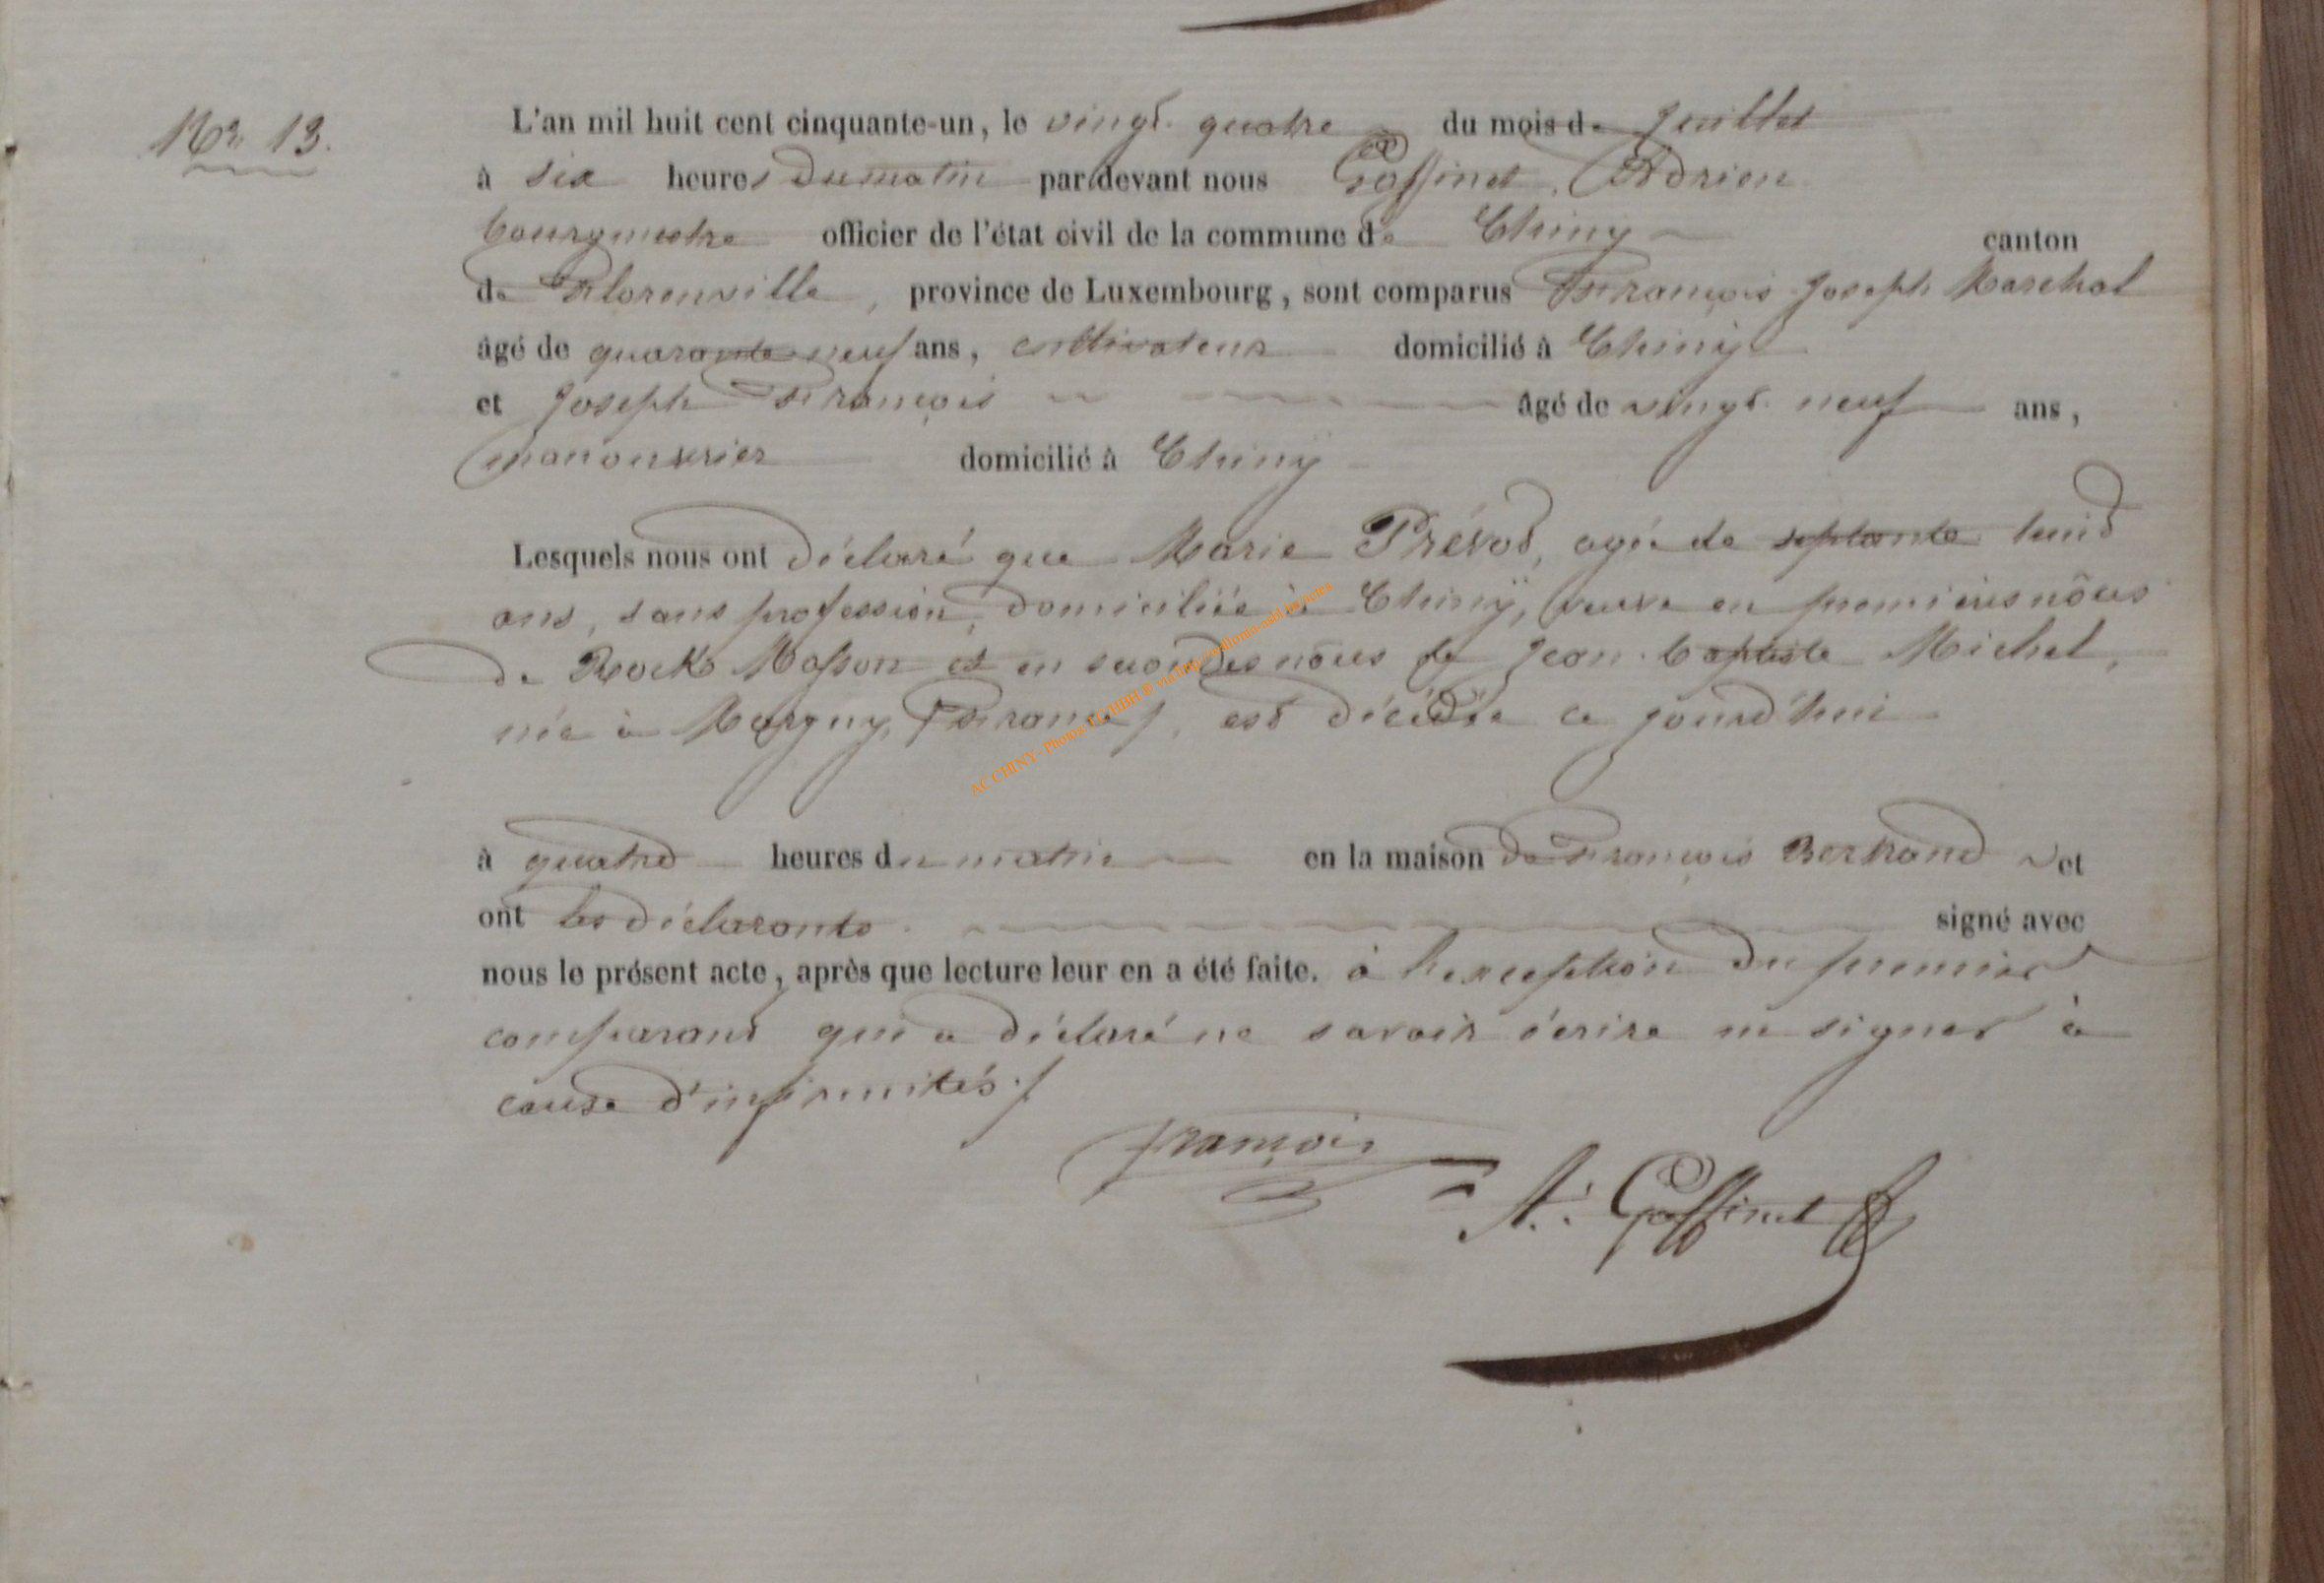 No 13.
L'an mil huit cent cinquante-un, le vingt-quatre du mois de Juillet
à six heures du matin par devant nous Goffinet, Adrien
bourgmestre officier de l'état civil de la commune de Chiny canton
de Florenville, province de Luxembourg, sont comparus François Joseph Marechal
âgé de quarante neuf ans, cultivateur domicilié à Chiny
et Joseph François âgé de vingt-neuf ans,
manouvrier domicilié à Chiny
Lesquels nous ont déclaré que Marie Prévot, agée de septante huit
ans, sans profession, domiciliée à Chinÿ, veuve en premières nôces
de Rock Masson et en secondes nôces de Jean-baptiste Michel,
née à Margny, (France), est décédée ce jourd'hui
à quatre heures du matin en la maison de François Bertrand et
ont les déclarants signé avec
nous le présent acte, après que lecture leur en a été faite. à l'exception du premier
comparant qui a déclaré ne savoir écrire ni signer à
cause d'infirmités ./
françois
A. Goffinet
AC CHINY - Photos